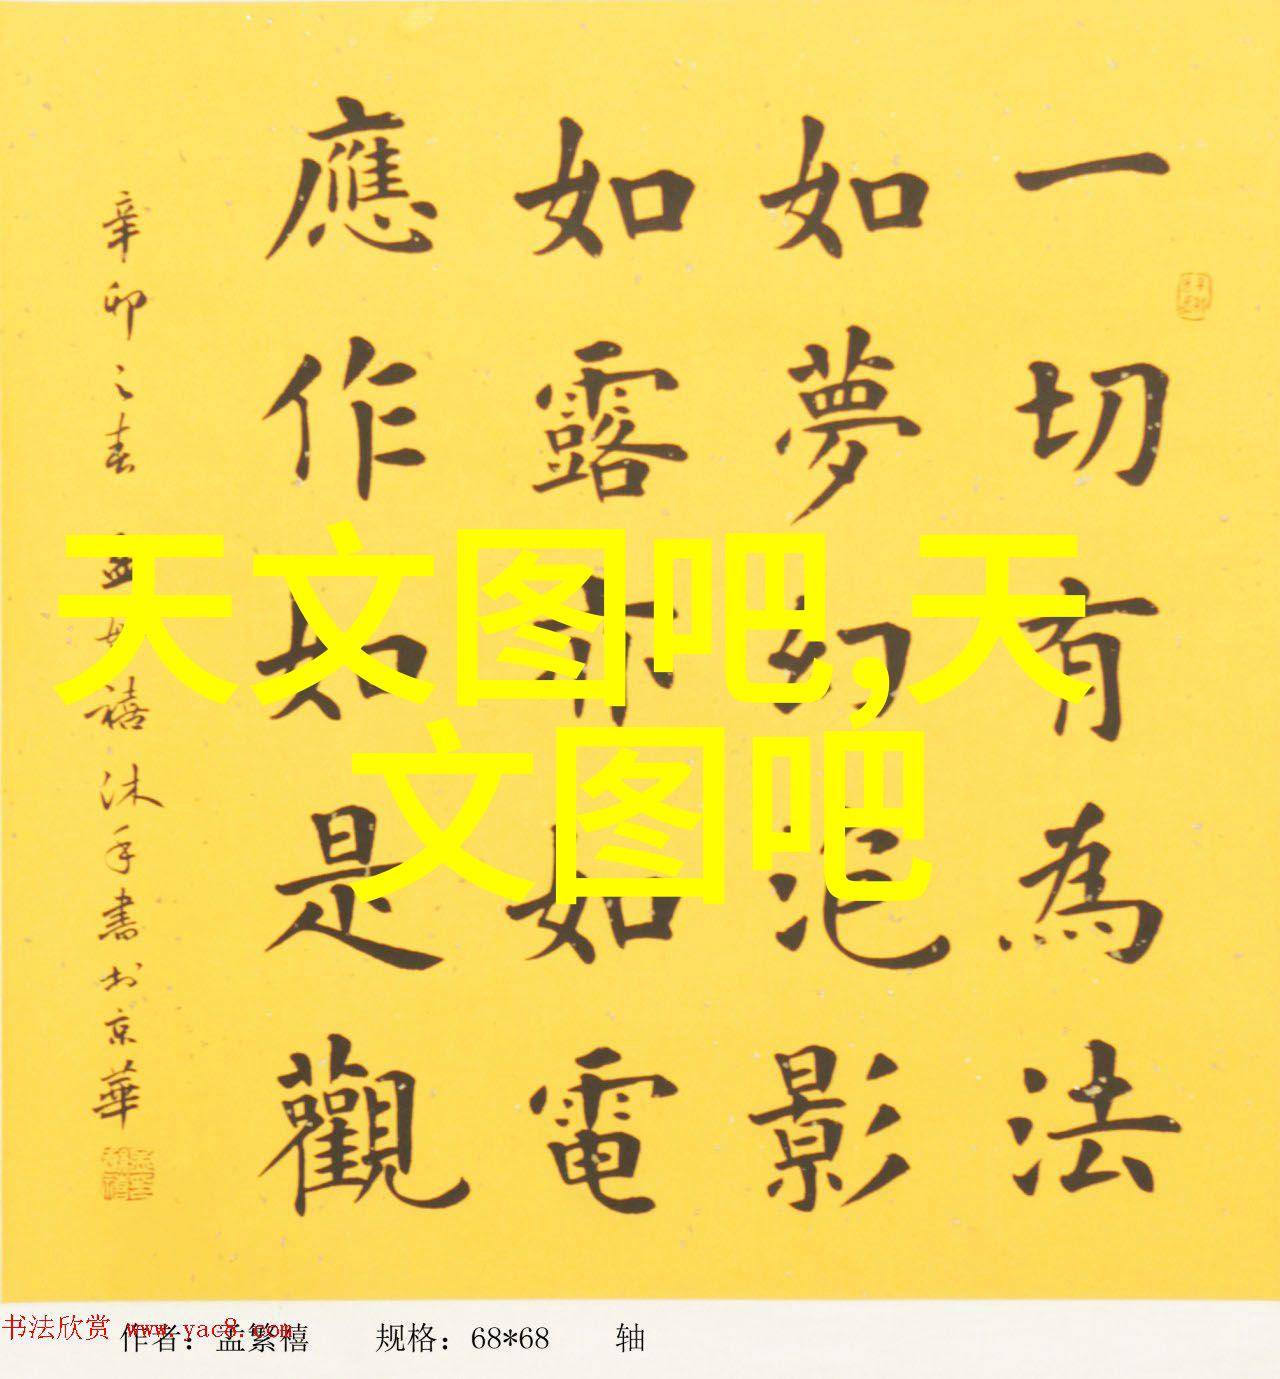 一切有為法
如夢幻泡影
如露亦如電
應作如是觀
辛卯之春孟繁禧沐手書於京華
天文图吧,天
文图吧
书法欣赏 www.yac8.com
作者：孟繁禧 规格：68*68 轴